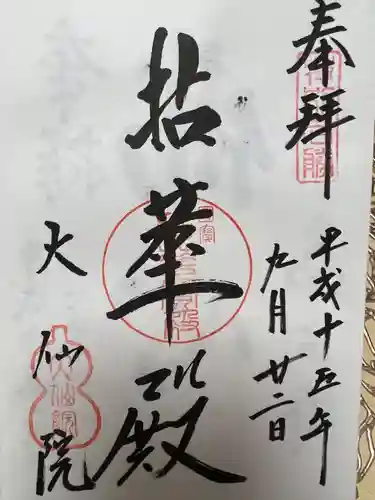 奉拝
平成十五年
九月廿二日
拈華殿
大仙院
大仙院